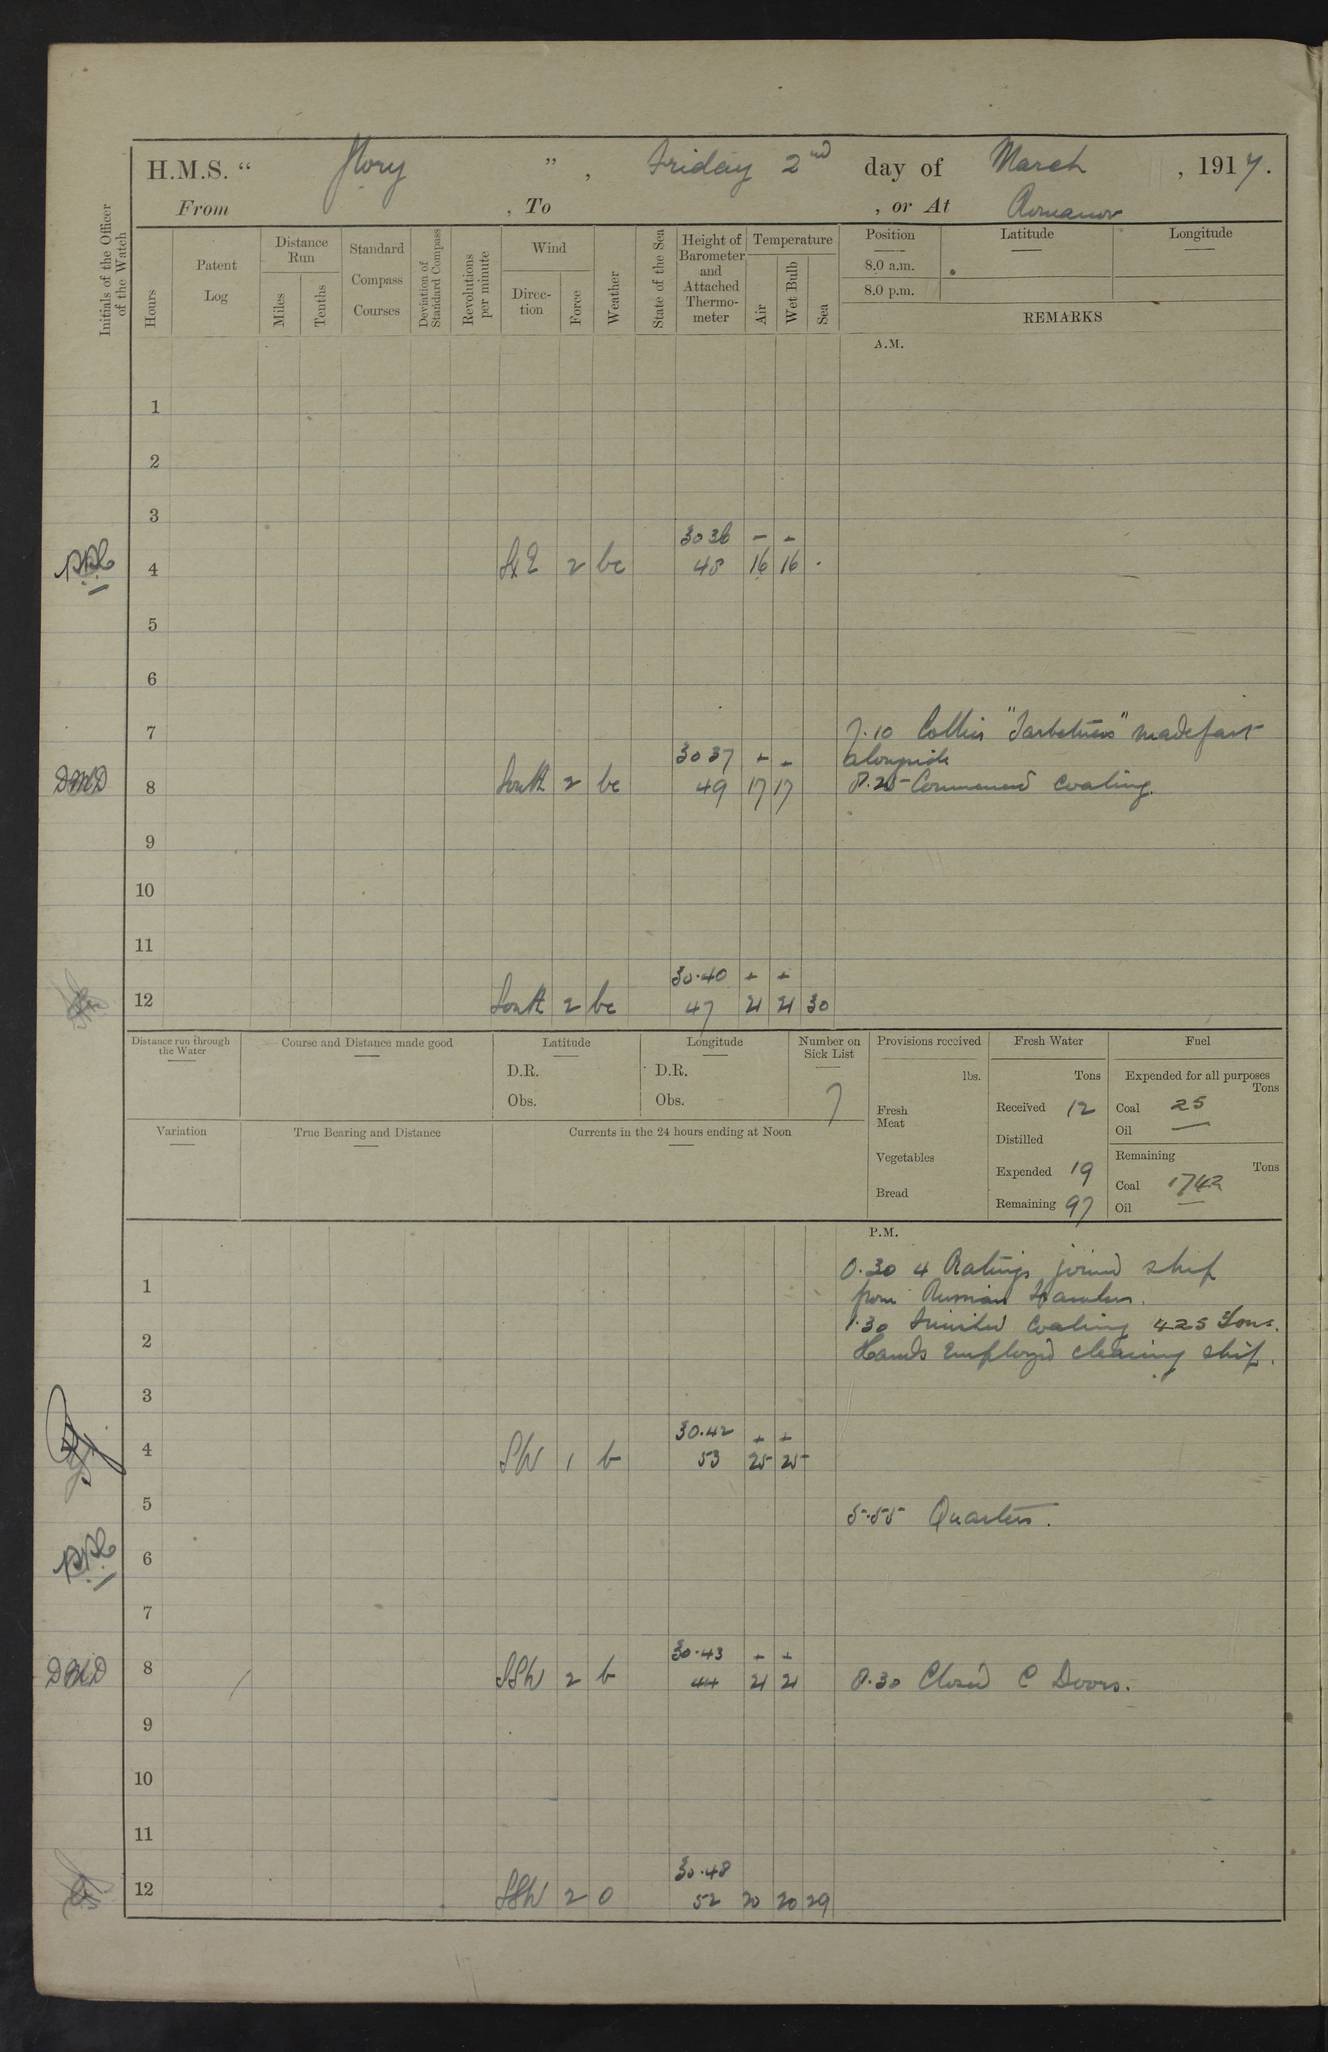 H.M.S. " Glory ", Friday 2nd day of March, 1917.
From , To , or At Romanov
Initials of the Officer of the Watch
Hours
Patent Log
Distance Run
Miles
Tenths
Standard Compass Courses
Deviation of Standard Compass
Revolutions per minute
Wind
Direction
Force
Weather
State of the Sea
Height of Barometer and Attached Thermometer
Temperature
Air
Wet Bulb
Sea
Position
8.0 a.m.
8.0 p.m.
Latitude
Longitude
REMARKS
A.M.
1
2
3
30 36 - -
4 SxE 2 bc 48 16 16
5
6
7 7.10 Collier "Tarbetness" made fast
30 37 + - alongside
DMD 8 South 2 bc 49 17 17 8.25 Commenced coaling.
9
10
11
30.40 + +
12 South 2 bc 47 21 21 30
Distance run through the Water
Course and Distance made good
Latitude
D.R.
Obs.
Longitude
D.R.
Obs.
Number on Sick List
7
Provisions received
lbs.
Fresh Meat
Vegetables
Bread
Fresh Water
Tons
Received 12
Distilled
Expended 19
Remaining 97
Fuel
Expended for all purposes
Tons
Coal 25
Oil —
Remaining
Tons
Coal 1742
Oil —
Variation
True Bearing and Distance
Currents in the 24 hours ending at Noon
P.M.
0.30 4 Ratings joined ship
1 from Russian
1.30 Finished Coaling 425 Tons.
2 Hands Employed cleaning ship.
3
30.42 + +
4 SW 1 b 53 25 25
5 5.55 Quarters.
6
7
30.43 + +
DMD 8 SSW 2 b 44 21 21 8.30 Closed C Doors.
9
10
11
30.48
12 SSW 2 0 52 20 20 29